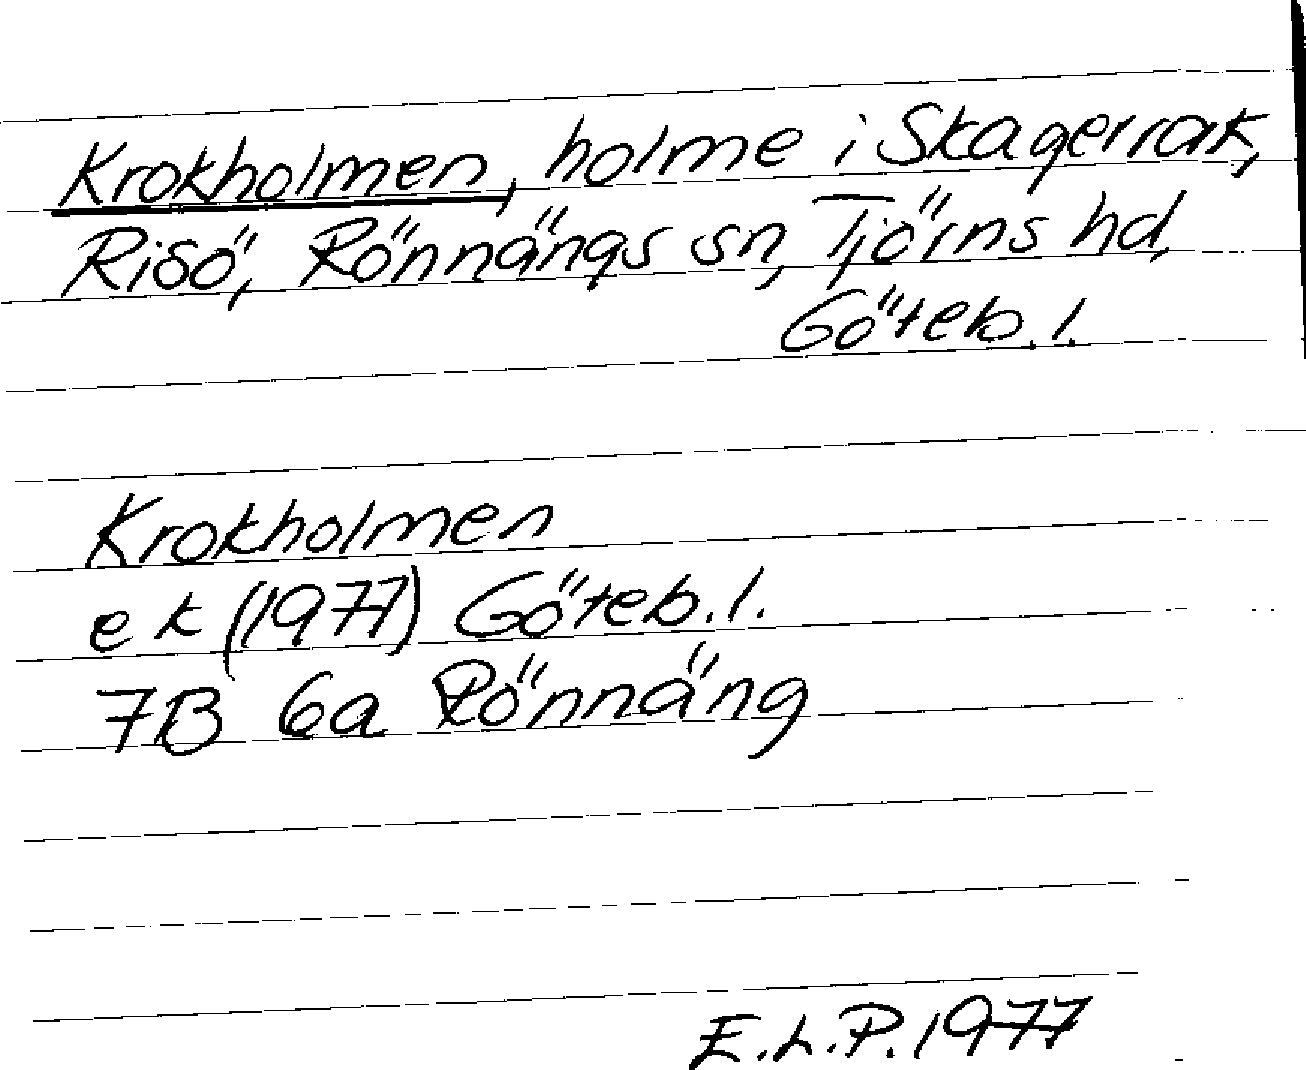 Krokholmen, holme i Skagerrak,
Risö, Rönnängs sn, Tjörns hd,
Göteb. l.
Krokholmen
ek (1977) Göteb. l.
7B 6a Rönnäng
E.L.P. 1977